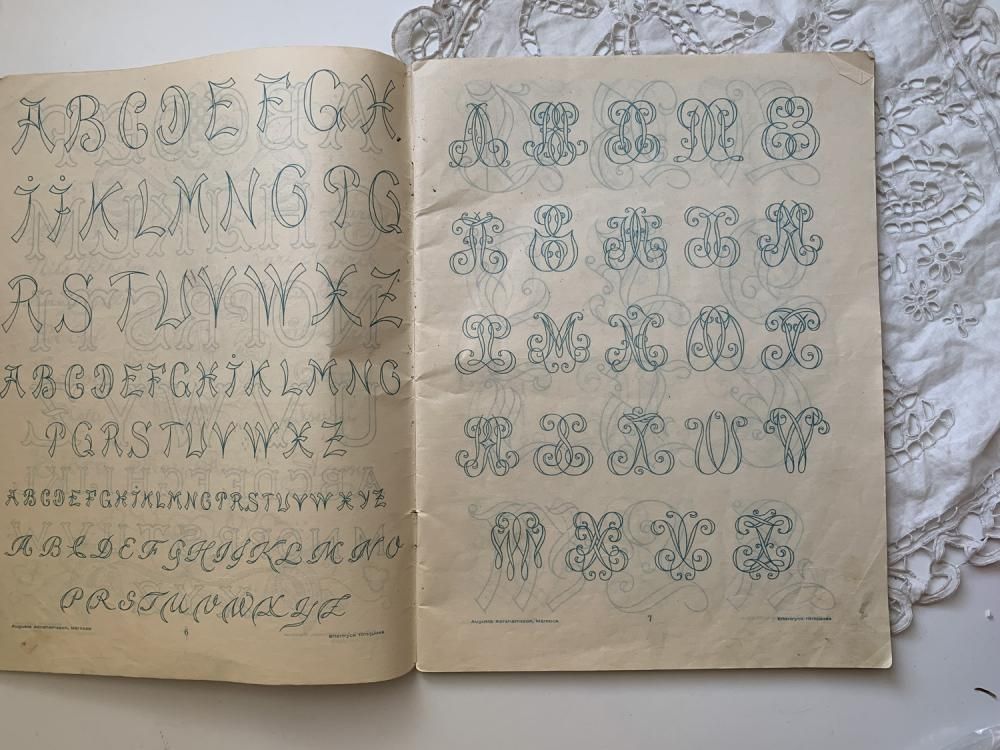 A B C D E F G H.
I J K L M N O P Q
R S T U V W X Z
A B C D E F G H I K L M N O
P Q R S T U V W X Z
A B C D E F G H I K L M N O P R S T U V W X Y Z
A B C D E F G H I J K L M N O
P R S T U V W X Y Z
Augusta Abrahamsson, Marback
6
Eftertryck förbjudes
A B C D E
F G H I K
L M N O P
R S T U V
W X Y Z
Augusta Abrahamsson, Marback
7
Eftertryck förbjudes